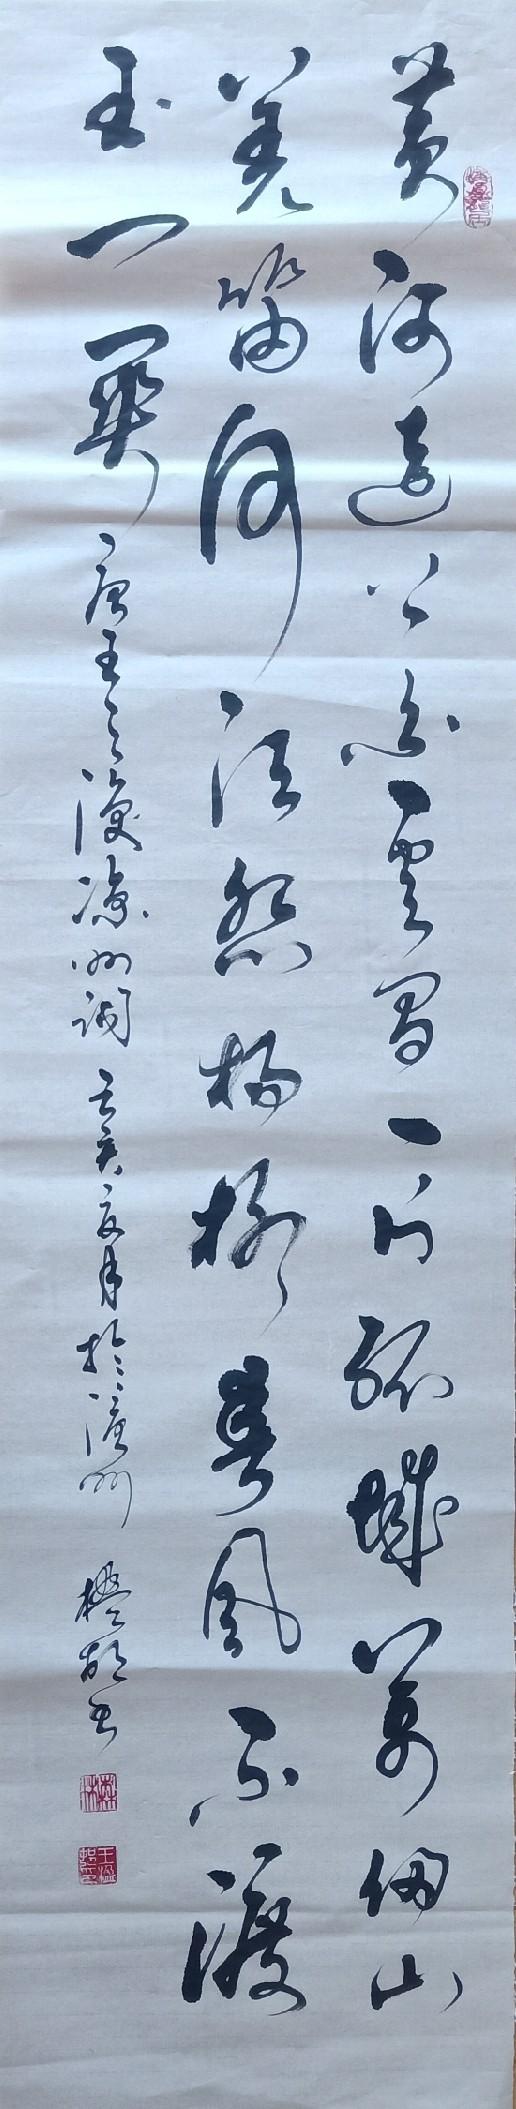 黄河远上白云间一片孤城万仞山
羌笛何须怨杨柳春风不渡
玉门关 唐王之涣凉州词 夏月於漳州 书